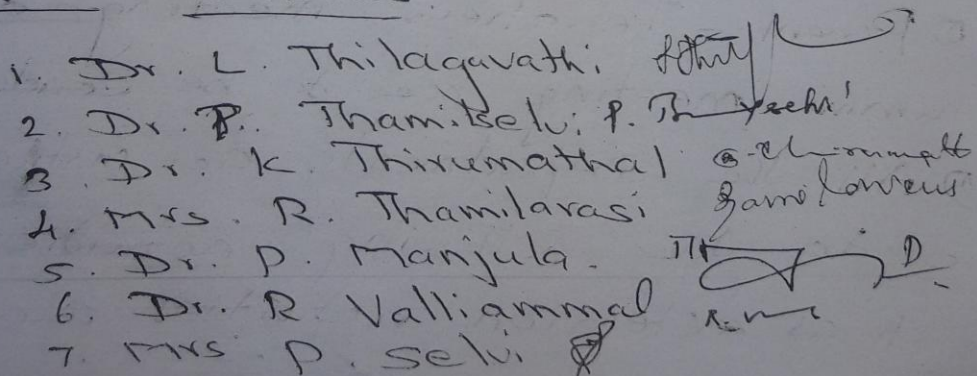 1. Dr. L. Thilagavathi
2. Dr. P. Thamilselvi P.
3. Dr. K. Thirumathal
4. Mrs. R. Thamilarasi
5. Dr. P. Manjula.
6. Dr. R. Valliammal
7. Mrs P. Selvi